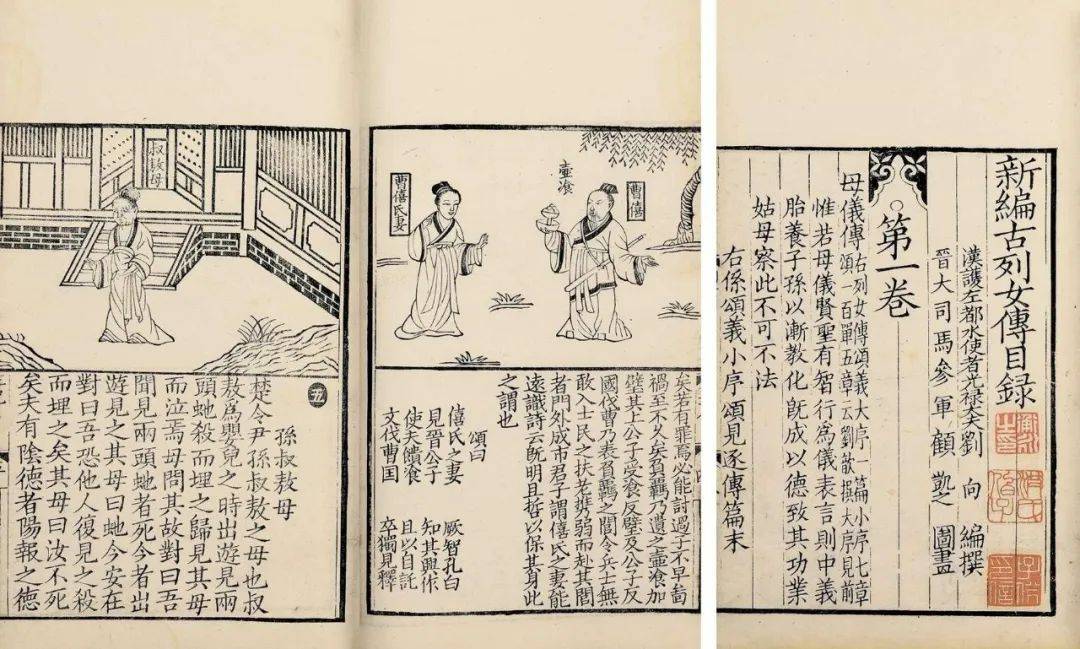 新編古列女傳目録
漢護左都水使者光禄大夫劉 向 編撰
晉大司馬參軍 顧 凱之 圖畫
第一卷
母儀傳
右列女傳頌義大序一篇小序七章
頌一百單五章云劉歆撰大序見前
惟若母儀賢聖有智行為儀表言則中義
胎養子孫以漸教化既成以德致其功業
姑母察此不可不法
右係頌義小序頌見逐傳篇末
曹僖
壷飡
曹僖氏妻
矣若有罪焉必能討過子不早啚
禍至不久矣負羈乃遺之壷飡加
璧其上公子受飡反璧及公子反
國伐曹乃表負羈之閭令兵士無
敢入士民之扶老携弱而赴其閭
者門外成市君子謂僖氏之妻能
逺識詩云既明且哲以保其身此
之謂也
頌曰
僖氏之妻 厥智孔白
見晉公子 知其興作
使夫饋飡 且以自託
文伐曹国 卒獨見釋
叔敖母
五
孫叔敖母
楚令尹孫叔敖之母也叔
敖爲嬰兒之時出遊見兩
頭虵殺而埋之歸見其母
而泣焉母問其故對曰吾
聞見兩頭虵者死今者出
遊見之其母曰虵今安在
對曰吾恐他人復見之殺
而埋之矣其母曰汝不死
矣夫有陰德者陽報之德